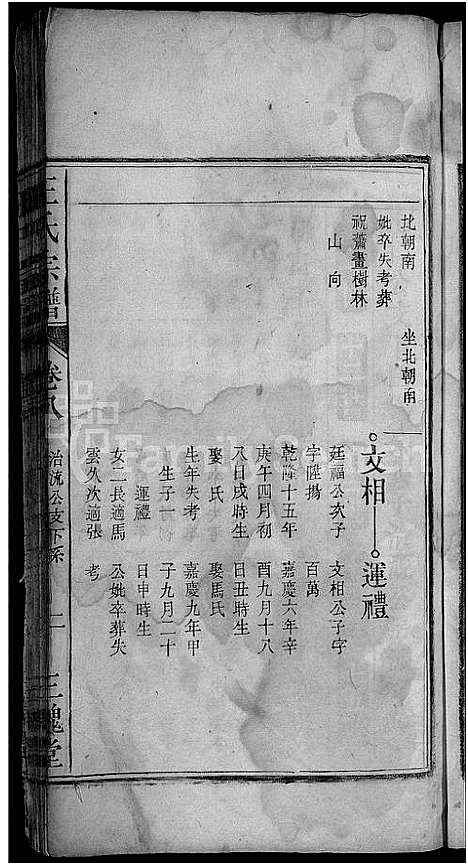 北朝南
妣卒失考葬
祝蕭畫樹林
山向
坐北朝南
文相
運禮
廷福公次子
字陞揚
乾隆十五年
庚午四月初
八日戌時生
娶 氏
生年失考
生子一
運禮
女二長適馬
雲久次適張
文相公子字
百萬
嘉慶六年辛
酉九月十八
日丑時生
娶馬氏
嘉慶九年甲
子九月二十
日申時生
公妣卒葬失
考
王氏宗譜
卷八
治流公支下系
二
三槐堂